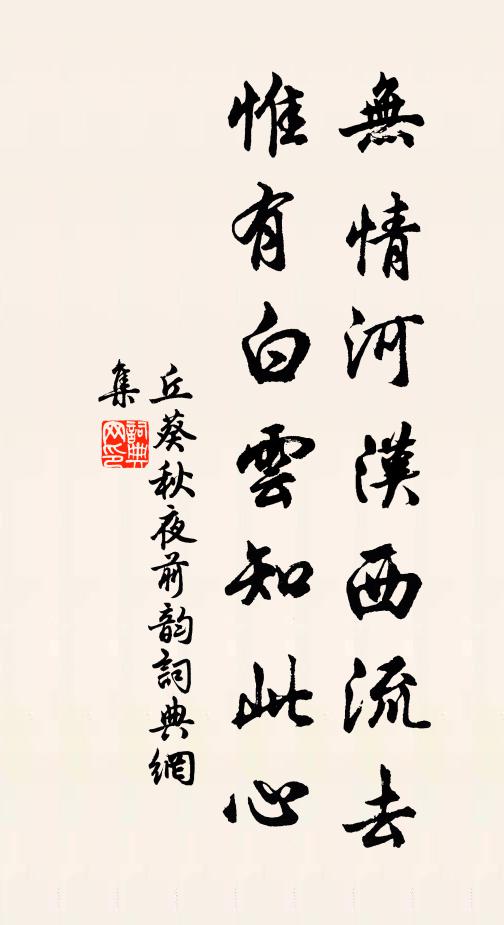 無情河漢西流去
惟有白雲知此心
丘葵秋夜前韵詞典網
集
詞典
网印